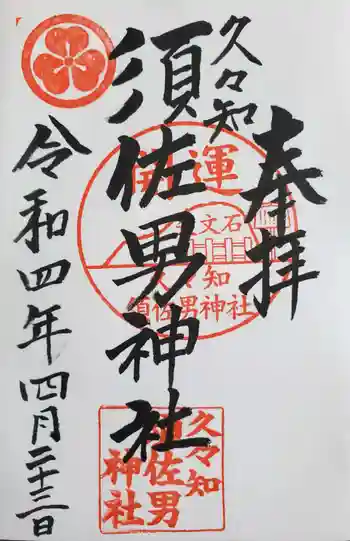 奉拝
久々知
須佐男神社
令和四年四月二十三日
開運
文石
久々知
須佐男神社
久々知
須佐男
神社